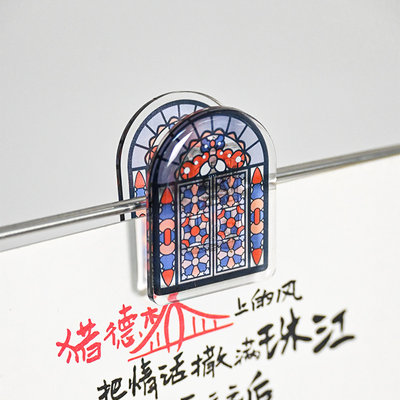 猎德大桥上的风
把情话撒满珠江